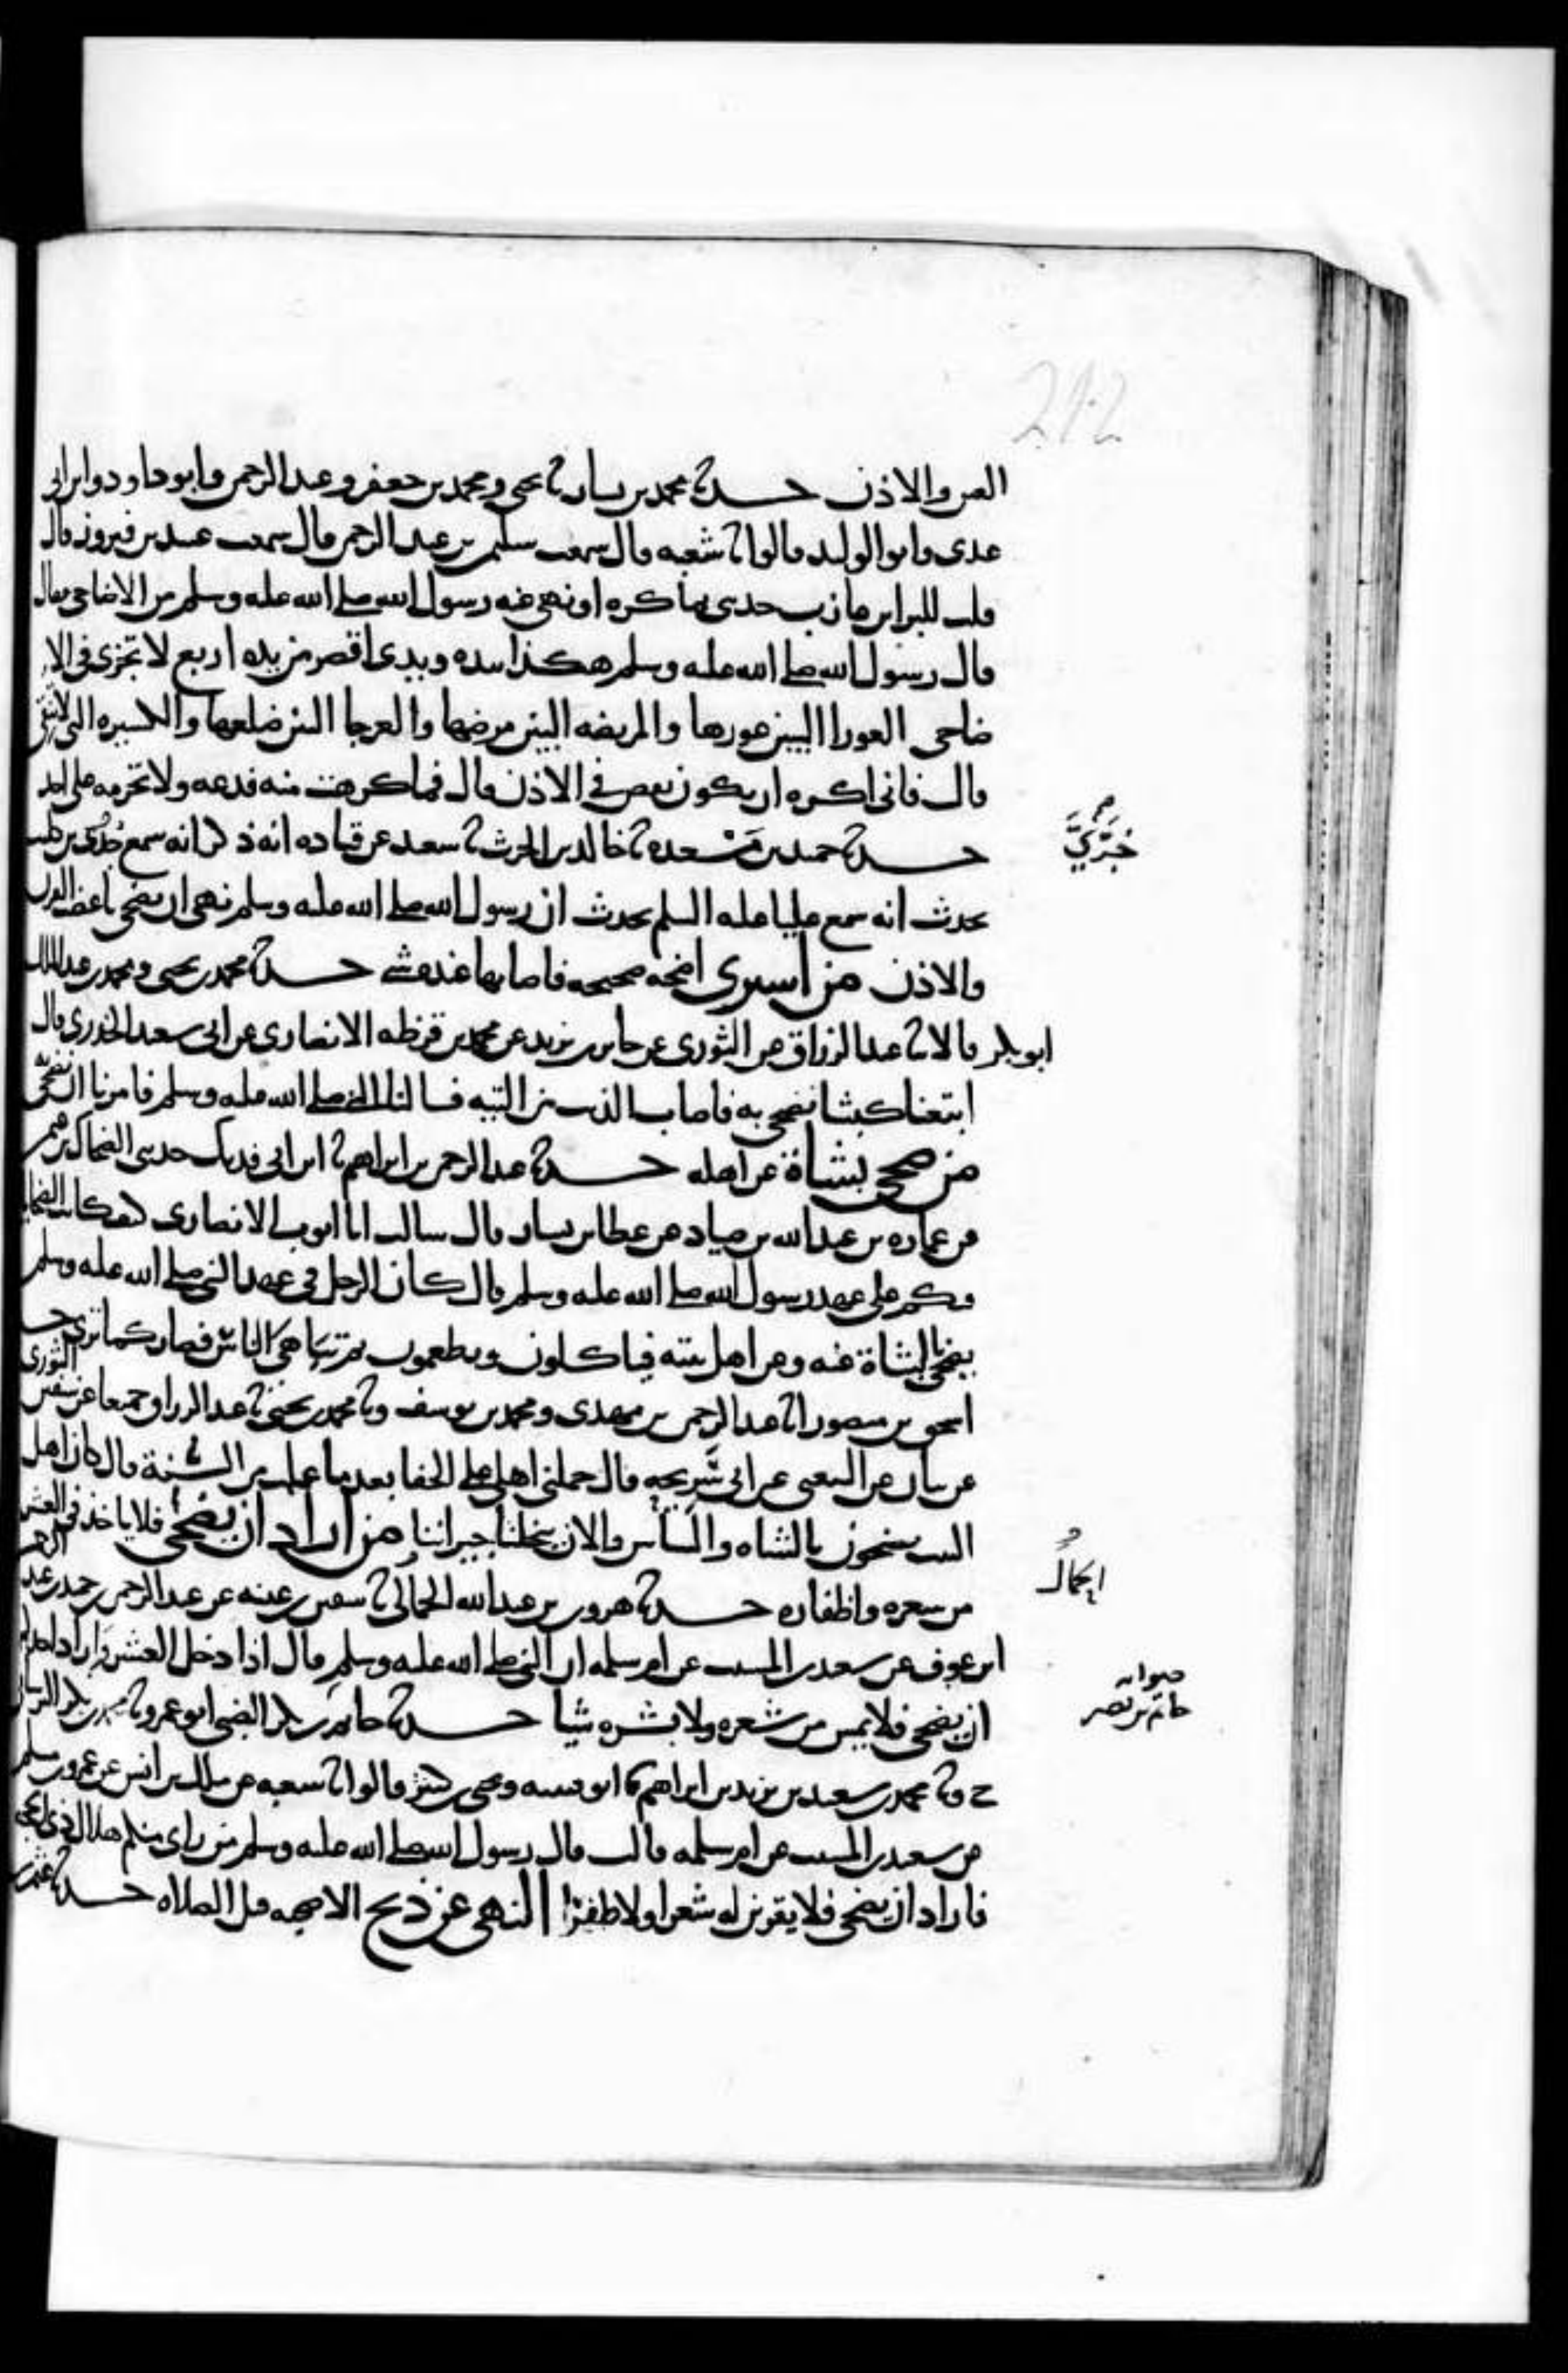 212
العين والاذن حدثنا محمد بن بشار ثنا يحيى ومحمد بن جعفر وعبد الرحمن وابو داود وابن ابي
عدي وابو الوليد قالوا ثنا شعبه قال سمعت سليمن بن عبد الرحمن قال سمعت عبيد بن فيروز قال
قلت للبرا بن عازب حدثني بما كره او نهى عنه رسول الله صلى الله عليه وسلم من الاضاحي فقال
قال رسول الله صلى الله عليه وسلم هكذا بيده ويدي اقصر من يده اربع لا تجزى في الا
ضاحي العورا البين عورها والمريضه البين مرضها والعرجا البين ضلعها والكسيره التي لا تنقي
قال فاني اكره ان يكون نقص في الاذن قال فما كرهت منه فدعه ولا تحرمه على احد
حدثنا حميد بن مسعدة ثنا خالد بن الحرث ثنا سعيد عن قتاده انه ذكر انه سمع جري بن كليب
جري
يحدث انه سمع عليا عليه السلم يحدث ان رسول الله صلى الله عليه وسلم نهى ان يضحى باعضب القرن
والاذن من اشترى اضحيه صحيحه فاصابها عنده شي حدثنا محمد بن يحيى ومحمد بن عبد الملك
ابو بكر قالا ثنا عبد الرزاق عن الثوري عن جابر بن يزيد عن محمد بن قرظه الانصاري عن ابي سعيد الخدري قال
ابتعنا كبشا نضحي به فاصاب الذيب من اليته فسالنا النبي صلى الله عليه وسلم فامرنا ان نضحي
من ضحى بشاة عن اهله حدثنا عبد الرحمن بن ابراهيم ثنا ابن ابي فديك حدثني الضحاك بن
عن عماره بن عبد الله بن صياد عن عطا بن يسار قال سالت ابا ايوب الانصاري كيف كانت الضحايا
فيكم على عهد رسول الله صلى الله عليه وسلم قال كان الرجل في عهد النبي صلى الله عليه وسلم
يضحي بالشاة عنه وعن اهل بيته فياكلون ويطعمون ثم تباهى الناس فصار كما ترى حدثنا
اسحق بن منصور انا عبد الرحمن بن مهدي ومحمد بن يوسف وثنا محمد بن يحيى ثنا عبد الرزاق جميعا عن سفين الثوري
عن بيان عن الشعبي عن ابي سريحه قال حملني اهلي على الجفا بعد ما علمت من السنة قال كان اهل
البيت يضحون بالشاه والشاتين والان يبخلنا جيراننا من اراد ان يضحي فلا ياخذ في العشر
من شعره واظفاره حدثنا هرون بن عبد الله الحمال ثنا سفين بن عيينه عن عبد الرحمن بن حميد بن عبد الرحمن
الحمال
ابن عوف عن سعيد بن المسيب عن ام سلمه ان النبي صلى الله عليه وسلم قال اذا دخل العشر واراد احدكم
ان يضحي فلا يمس من شعره ولا بشره شيا حدثنا حاتم بن بكر الضبي ابو عمرو ثنا محمد بن بكر البرساني
صوابه
حاتم بن نصر
ح وثنا محمد بن سعيد بن يزيد بن ابراهيم ثنا ابو قتيبه ويحيى بن كثير قالوا ثنا شعبه عن ملك بن انس عن عمرو بن مسلم
عن سعيد بن المسيب عن ام سلمه قالت قال رسول الله صلى الله عليه وسلم من راى منكم هلال ذي الحجه
فاراد ان يضحي فلا يقربن له شعرا ولا ظفرا النهي عن ذبح الاضحيه قبل الصلاه حدثنا عثمن بن